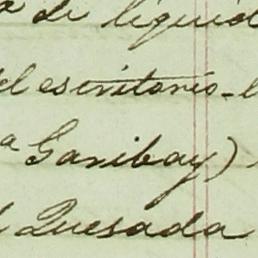 de liquid
el escritorio-l
a Garibay)
l Quesada